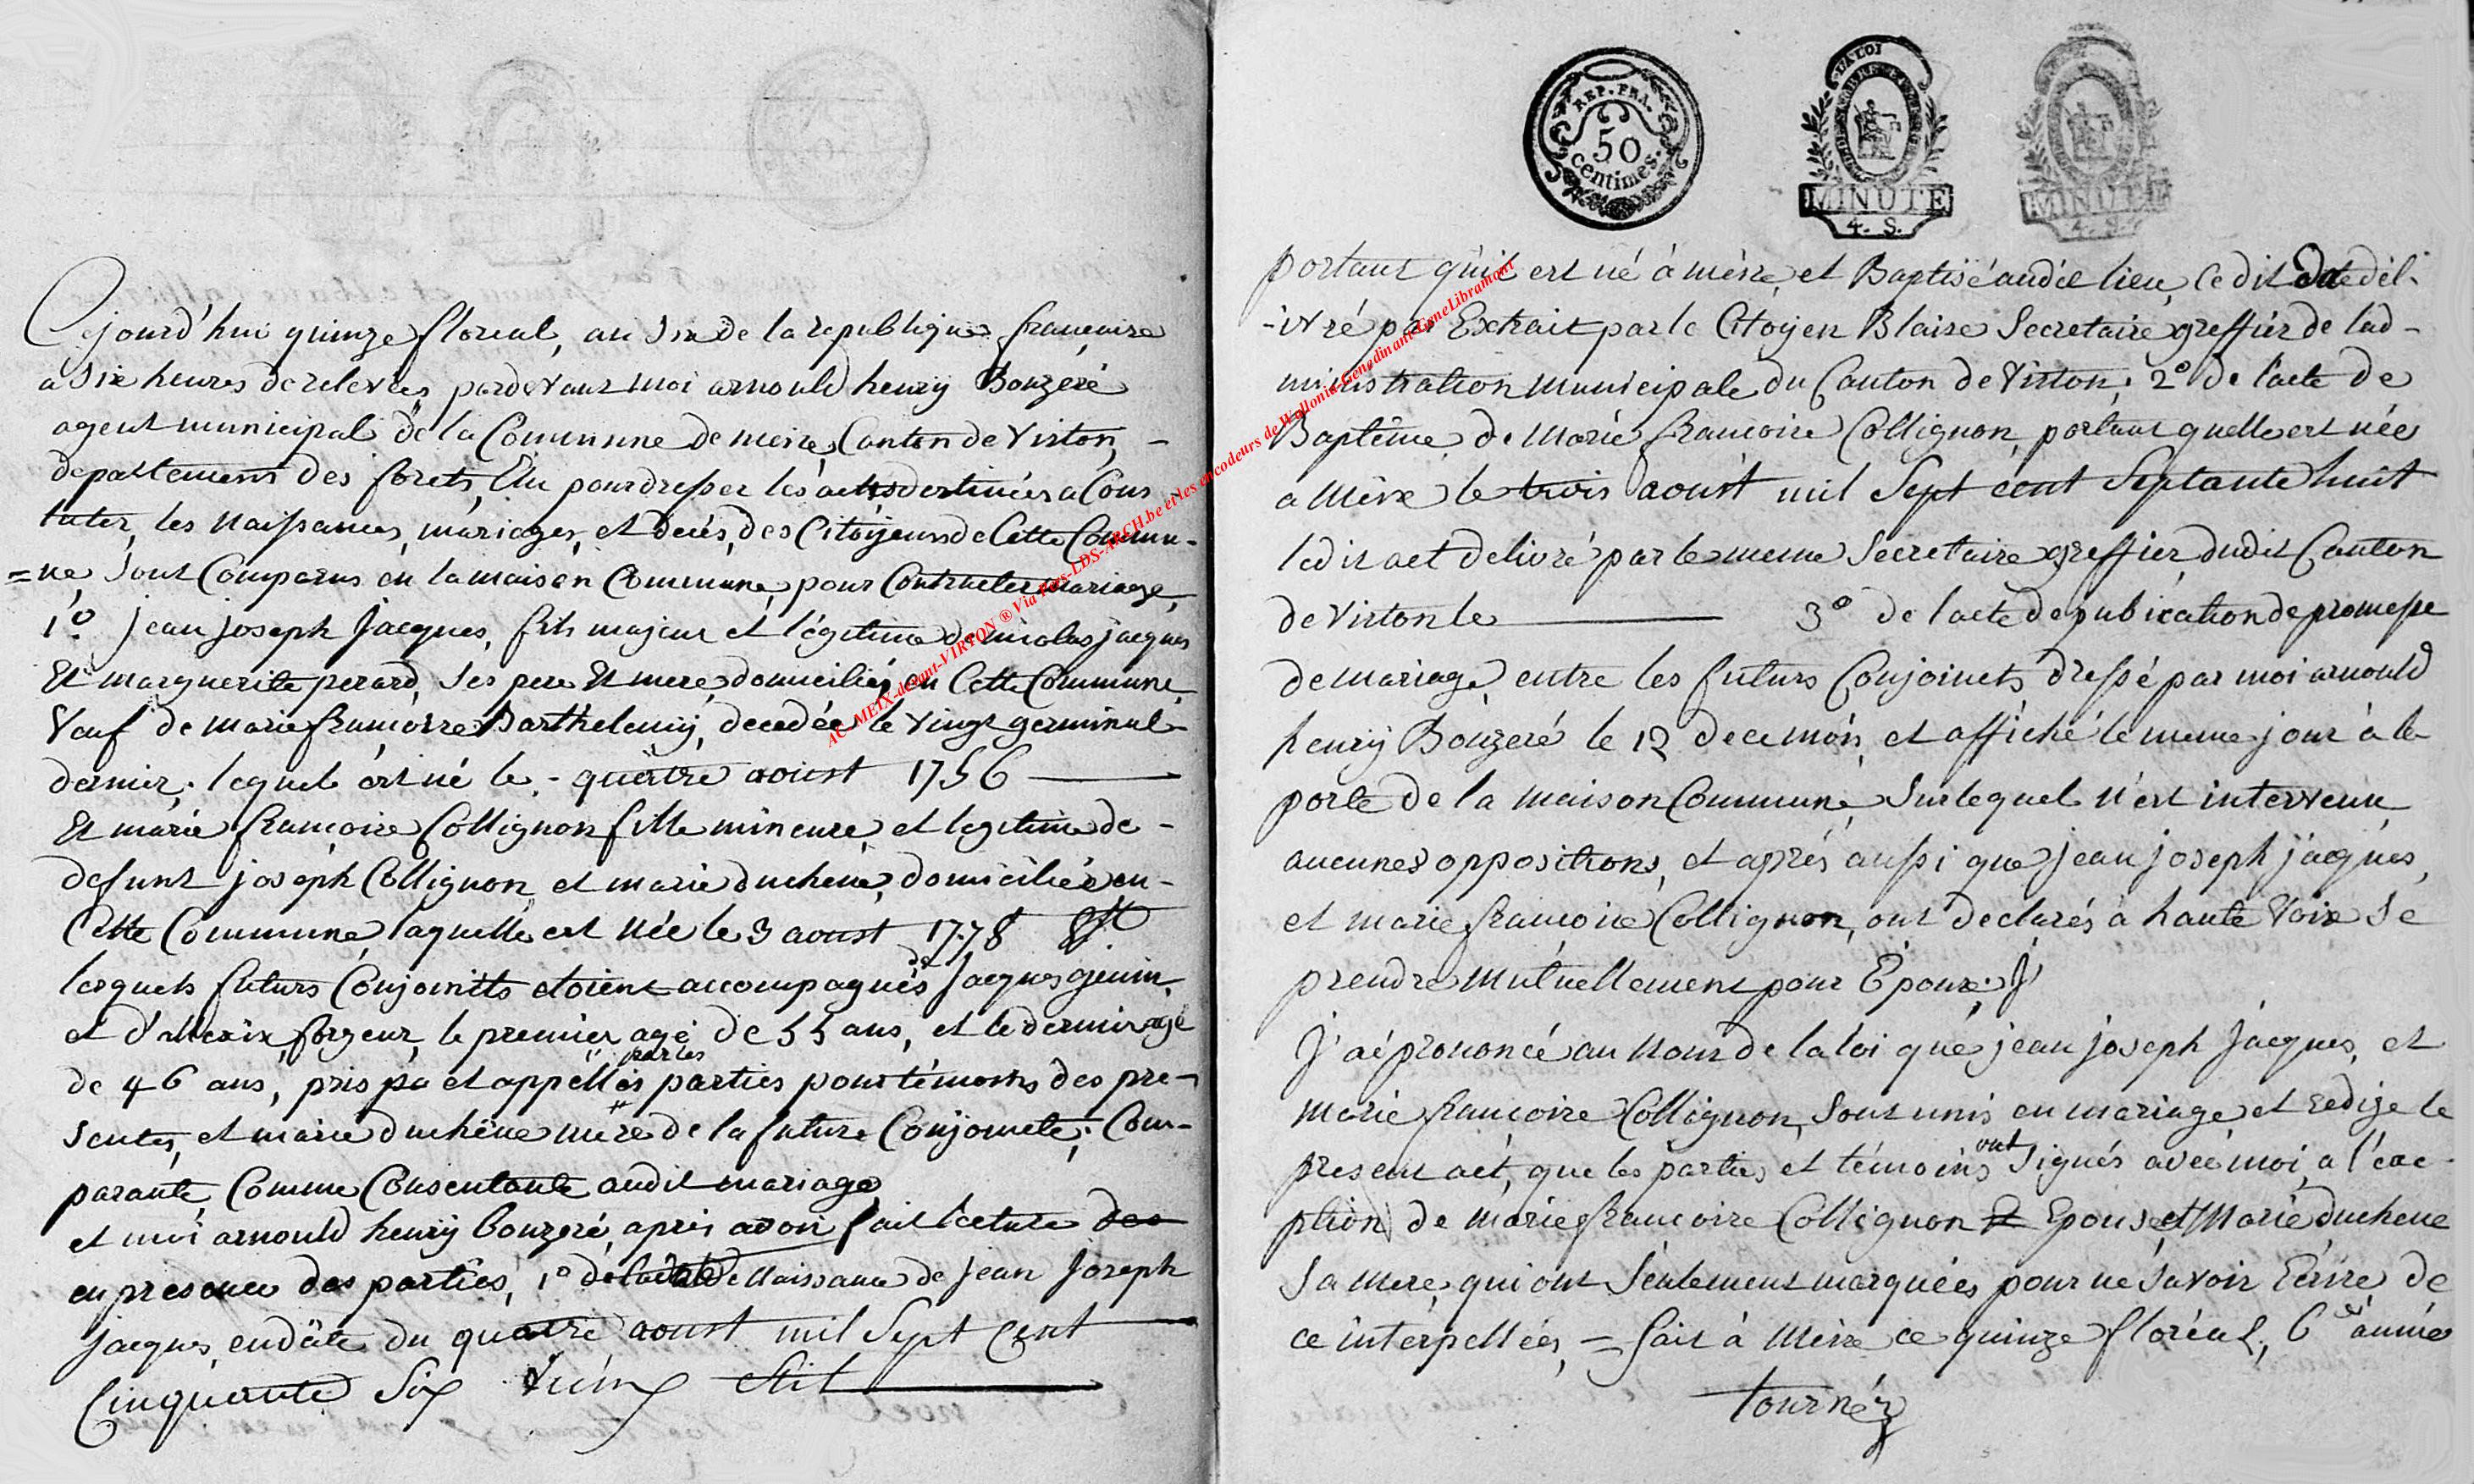 Cejourd'hui quinze floreal, an six de la republique francaise
a six heures de relevées pardevant moi arnould henry Bouzeré
agent municipal de la Commune de meix, Canton de Virton, -
departement des forets, Elu pour dresser les actes destinées a Cons
tater, les Naissances, mariages, et decés, des Citoÿens de Cette Commu-
=ne, sont Comparus en la maison Commune, pour Contracter mariage,
1.° jean joseph Jacques, fils majeur et légitime de nicolas jacques
Et marguerite perard, ses pere Et mere, domiciliés en Cette Commune,
Veuf de marie francoise Barthelemÿ, decedée le vingt germinal
dernier; lequel est né le - quattre aoust 1756
Et marie francoise Collignon fille mineure, et legitime de -
defunt joseph Collignon, et marie duchene, domiciliée en -
Cette Commune, laquelle est Née le 3 aoust 1778
lesquels futurs Conjointts etoient accompagnés de Jacques genin,
et d'allexix forgeur, le premier agé de 55 ans, et le dernier agé
de 46 ans, pris pa et appellés par les parties pour témoins des pre-
sentes, et marie duchêne mere de la future Conjointe; Com-
parante, Comme Consentante audit mariage,
et moi arnould henrÿ bouzeré, après avoir fait lecture des
en presence des parties, 1° de l'acte de Naissance de jean Joseph
jacques, en däte du quatre aoust mil Sept Cent
Cinquante Six vieux stil
REP. FRA.
50
centimes.
LA LOI
MINUTE
4. S.
MINUTE
4. S.
portant qu'il est né à meix, et Baptisé audit lieu, ledit acte dél-
-ivré par Extrait par le Citoÿen Blaise Secretaire greffier de l'ad-
ministration municipale du Canton de Virton; 2° de l'acte de
Baptême de Marie francoise Collignon, portant quelle est née
a Meix le trois aoust mil Sept cent Septante huit
ledit act delivré par le meme Secretaire greffier dudit Canton
de Virton le 3° de l'acte de publication de promesse
de mariage, entre les futurs Conjoincts dressé par moi arnould
henrÿ Bouzeré le 12 de ce mois, et affiché le meme jour à la
porte de la maison Commune, Sur lequel n'est intervenu
aucunes oppositions, et après aussi que jean joseph jacques,
et marie francoise Collignon, ont declarés à haute Voix Se
prendre mutuellement pour Epoux;
J'ai prononcé au nom de la loi que jean joseph Jacques, et
marie francoise Collignon, sont unis en mariage et redigé le
present act, que les parties et témoins ont signés avec moi, a l'exc-
eption de marie francoise Collignon Epouse, et Marie duchene
sa mere, qui ont seulement marquées pour ne savoir Ecrire, de
ce interpellées, = fait à Meix ce quinze floréal, 6 année
tournéz
AC-MEIX-devant-VIRTON ® Via Fers-LDS-ARCH.be et les encodeurs de Wallonia-Genedinant-GeneLibramont